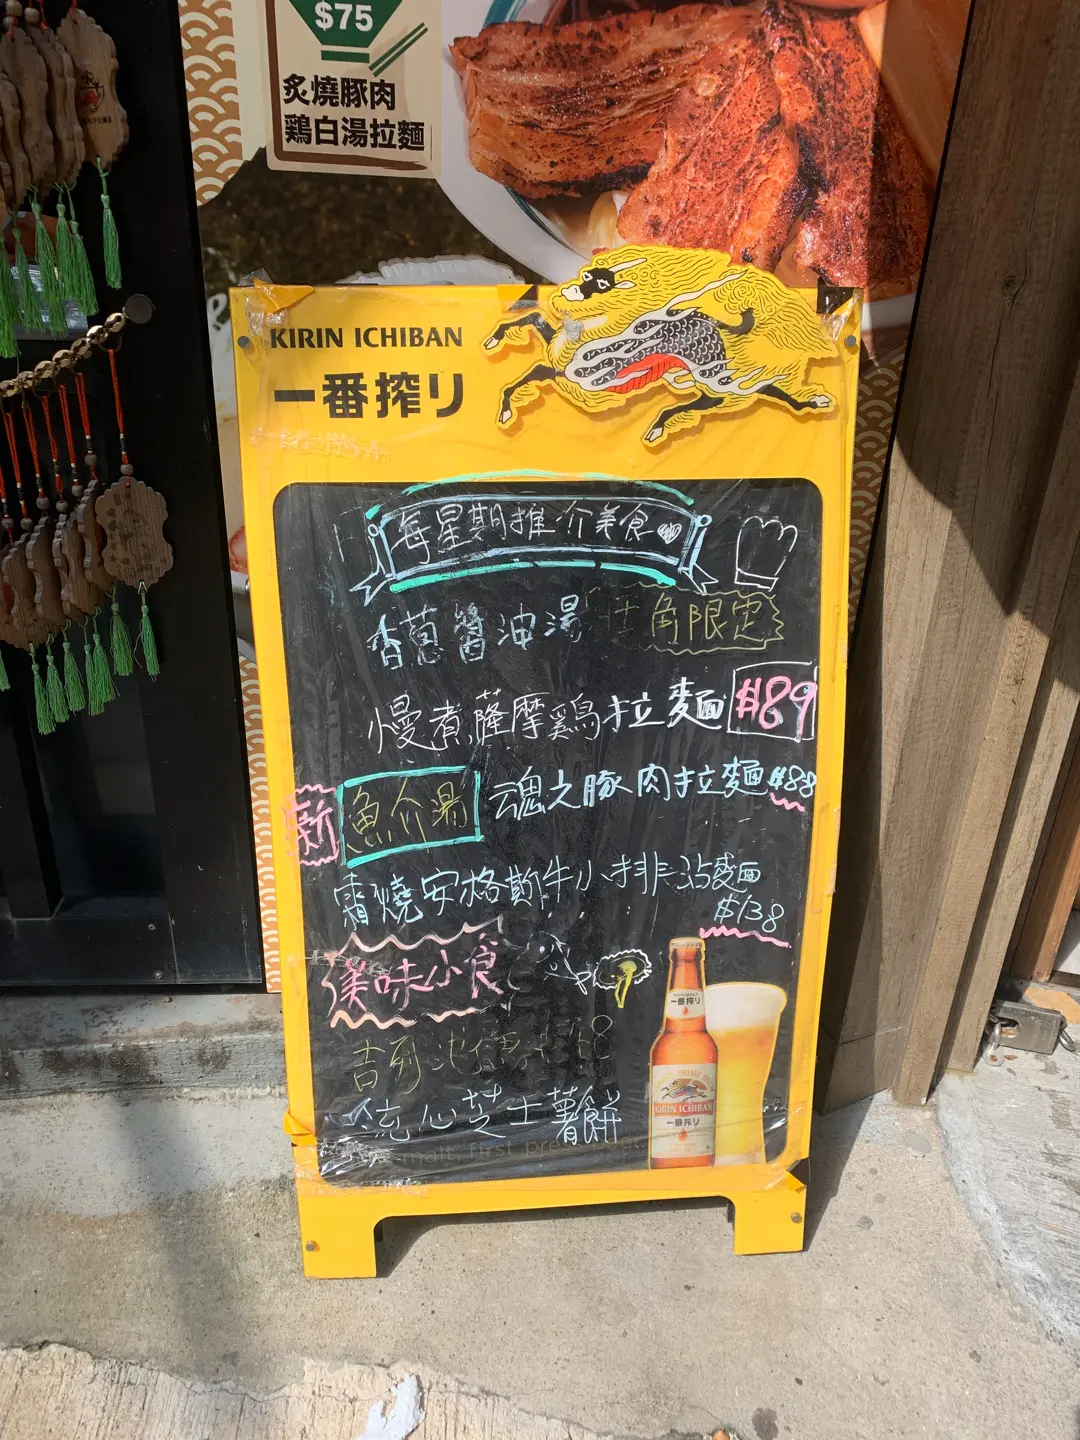 $75
炙燒豚肉
鶏白湯拉麵
KIRIN ICHIBAN
一番搾り
每星期推介美食
香蔥醬油湯 旺角限定
慢煮薩摩鶏拉麵 $89
新 魚介湯 魂之豚肉拉麵 $88
霜燒安格斯牛小排沾麵
$138
美味小食
吉列
流心芝士薯餅
malt, first press
一番搾り
KIRIN ICHIBAN
一番搾り